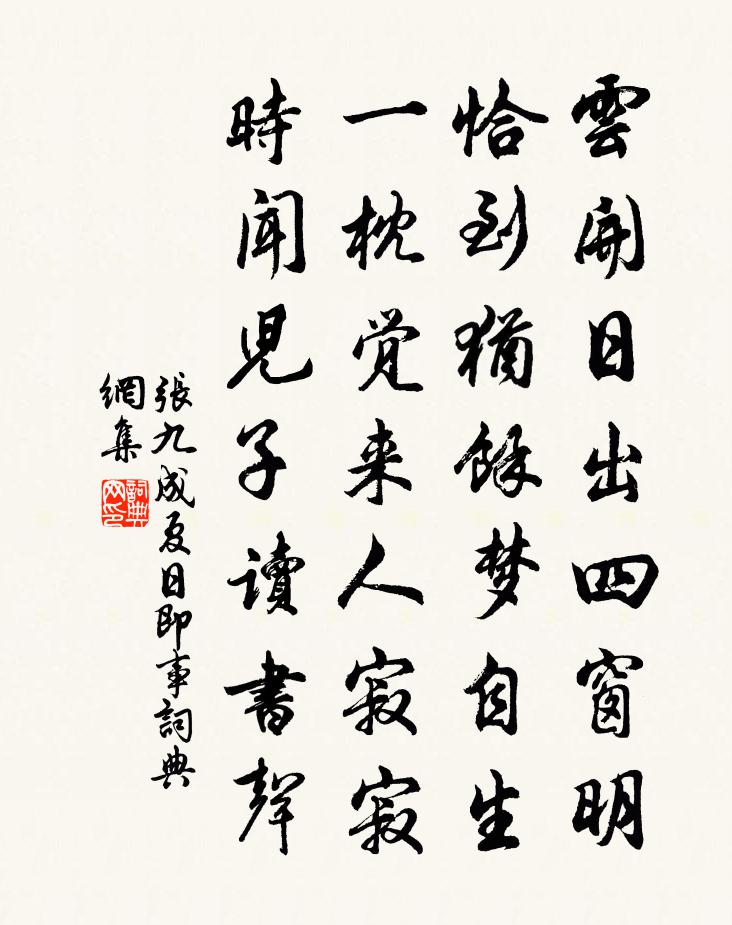 雲開日出四窗明
恰到猶餘梦自生
一枕覚来人寂寂
時聞児子讀書聲
張九成夏日即事詞典
網集
詞典
网印